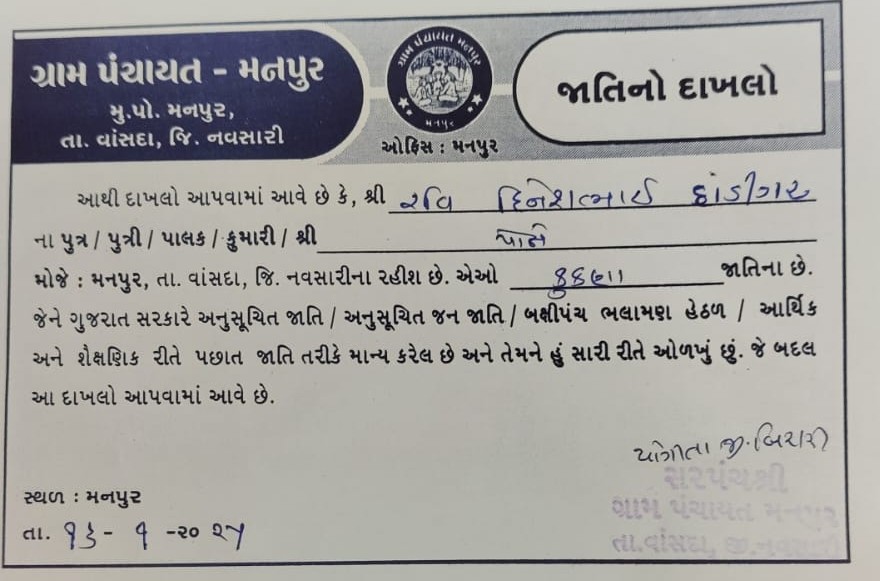 ગ્રામ પંચાયત - મનપુર
મુ.પો. મનપુર,
તા. વાંસદા, જિ. નવસારી
ગ્રામ પંચાયત મનપુર
મનપુર
ઓફિસ : મનપુર
જાતિનો દાખલો
આથી દાખલો આપવામાં આવે છે કે, શ્રી રવિ દિનેશભાઈ
ના પુત્ર / પુત્રી / પાલક / કુમારી / શ્રી પોતે
મોજે : મનપુર, તા. વાંસદા, જિ. નવસારીના રહીશ છે. એઓ કુકણા જાતિના છે.
જેને ગુજરાત સરકારે અનુસૂચિત જાતિ / અનુસૂચિત જન જાતિ / બક્ષીપંચ ભલામણ હેઠળ / આર્થિક
અને શૈક્ષણિક રીતે પછાત જાતિ તરીકે માન્ય કરેલ છે અને તેમને હું સારી રીતે ઓળખું છું. જે બદલ
આ દાખલો આપવામાં આવે છે.
યોગીતા જી. બિરારી
સરપંચશ્રી
ગ્રામ પંચાયત મનપુર
તા.વાંસદા, જી.નવસારી
સ્થળ : મનપુર
તા. ૧૬ - ૧ -૨૦ ૨૫